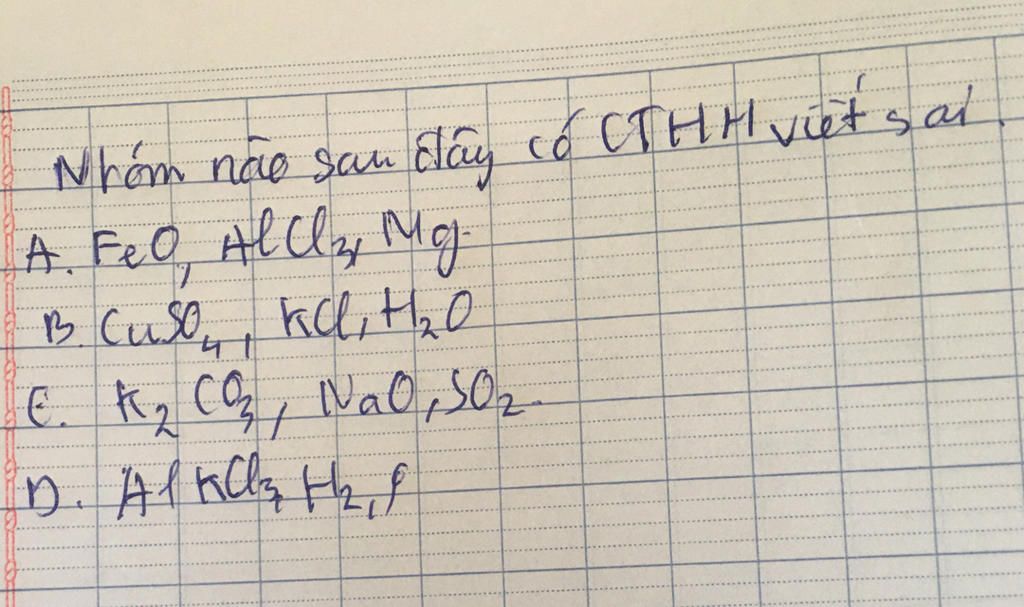 Nhóm nào sau đây có CTHH viết sai.
A. FeO, AlCl3, Mg.
B. CuSO4, KCl, H2O
C. K2CO3, NaO, SO2.
D. Al KCl3 H2, P